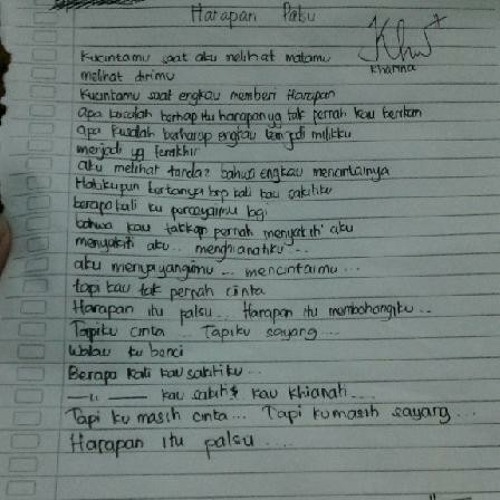 Harapan Palsu
Kharina
Kucintamu saat aku melihat matamu
melihat dirimu
Kucintamu saat engkau memberi Harapan
Apa kusalah berharap itu harapan yg tak pernah kau berikan
Apa kusalah berharap engkau menjadi milikku
menjadi yg terakhir
aku melihat tanda² bahwa engkau mencintainya
Hatikupun bertanya brp kali kau sakitiku
berapa kali ku percayaimu lagi
bahwa kau takkan pernah menyakiti aku
menyakiti aku.. menghianatiku...
aku menyayangimu... mencintaimu...
tapi kau tak pernah cinta
Harapan itu palsu.. Harapan itu membohongiku..
Tapiku cinta... Tapiku sayang...
Walau ku benci
Berapa kali kau sakitiku..
—"— kau sakiti kau khianati....
Tapi ku masih cinta... Tapi ku masih sayang...
Harapan itu palsu....